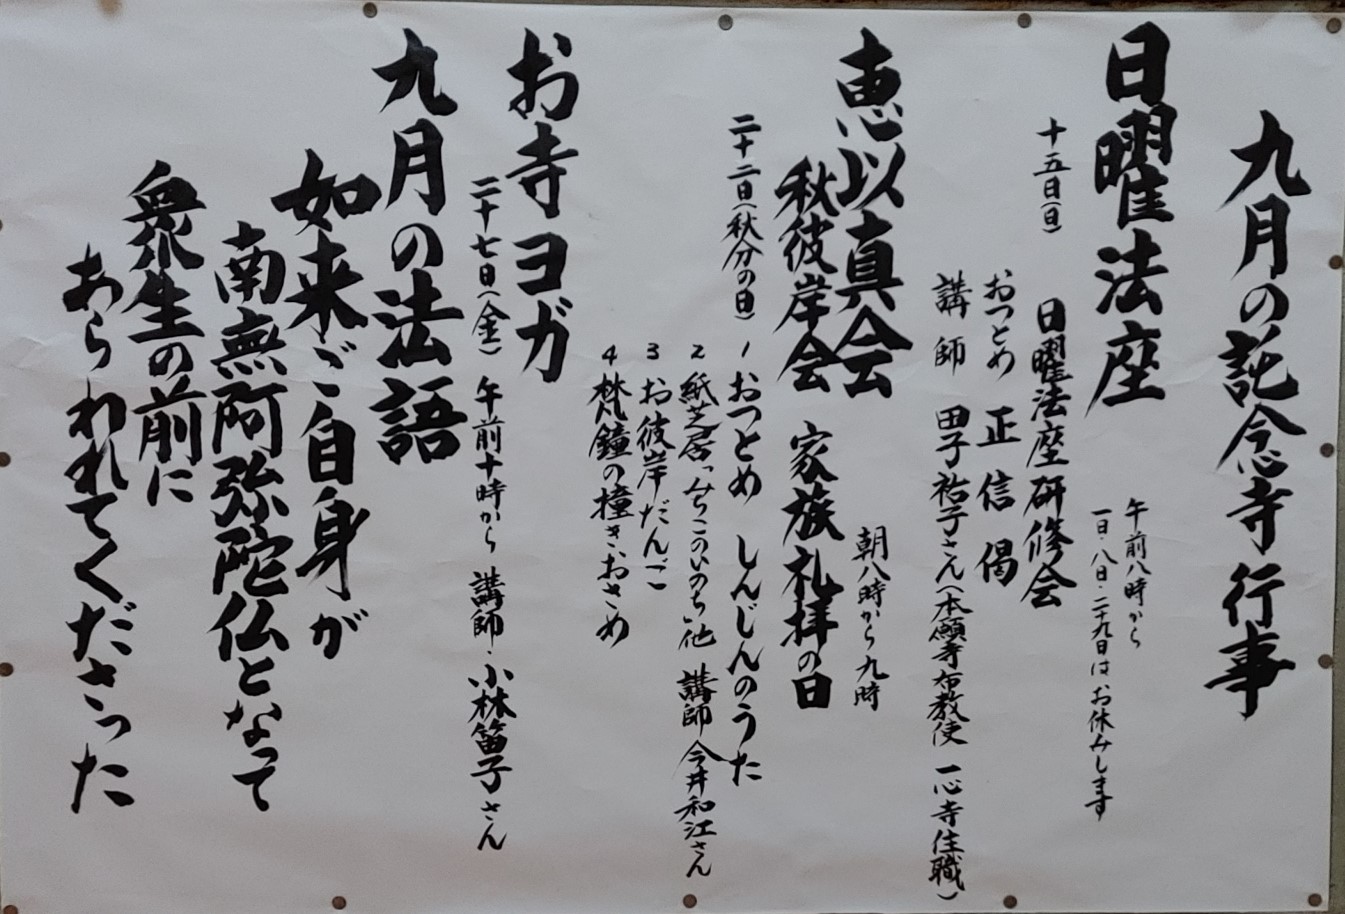 九月の託念寺行事
日曜法座
午前八時から
一日・八日・二十九日はお休みします
十五日(日)
日曜法座研修会
おつとめ 正信偈
講師 田子祐子さん(本願寺布教使 一心寺住職)
恵以真会
朝八時から九時
秋彼岸会 家族礼拝の日
二十二日(秋分の日)
1 おつとめ しんじんのうた
2 紙芝居「みちこのいのち」他 講師 今井和江さん
3 お彼岸だんご
4 梵鐘の撞きおさめ
お寺ヨガ
二十七日(金) 午前十時から 講師・小林笛子さん
九月の法語
如来ご自身が
南無阿弥陀仏となって
衆生の前に
あらわれてくださった